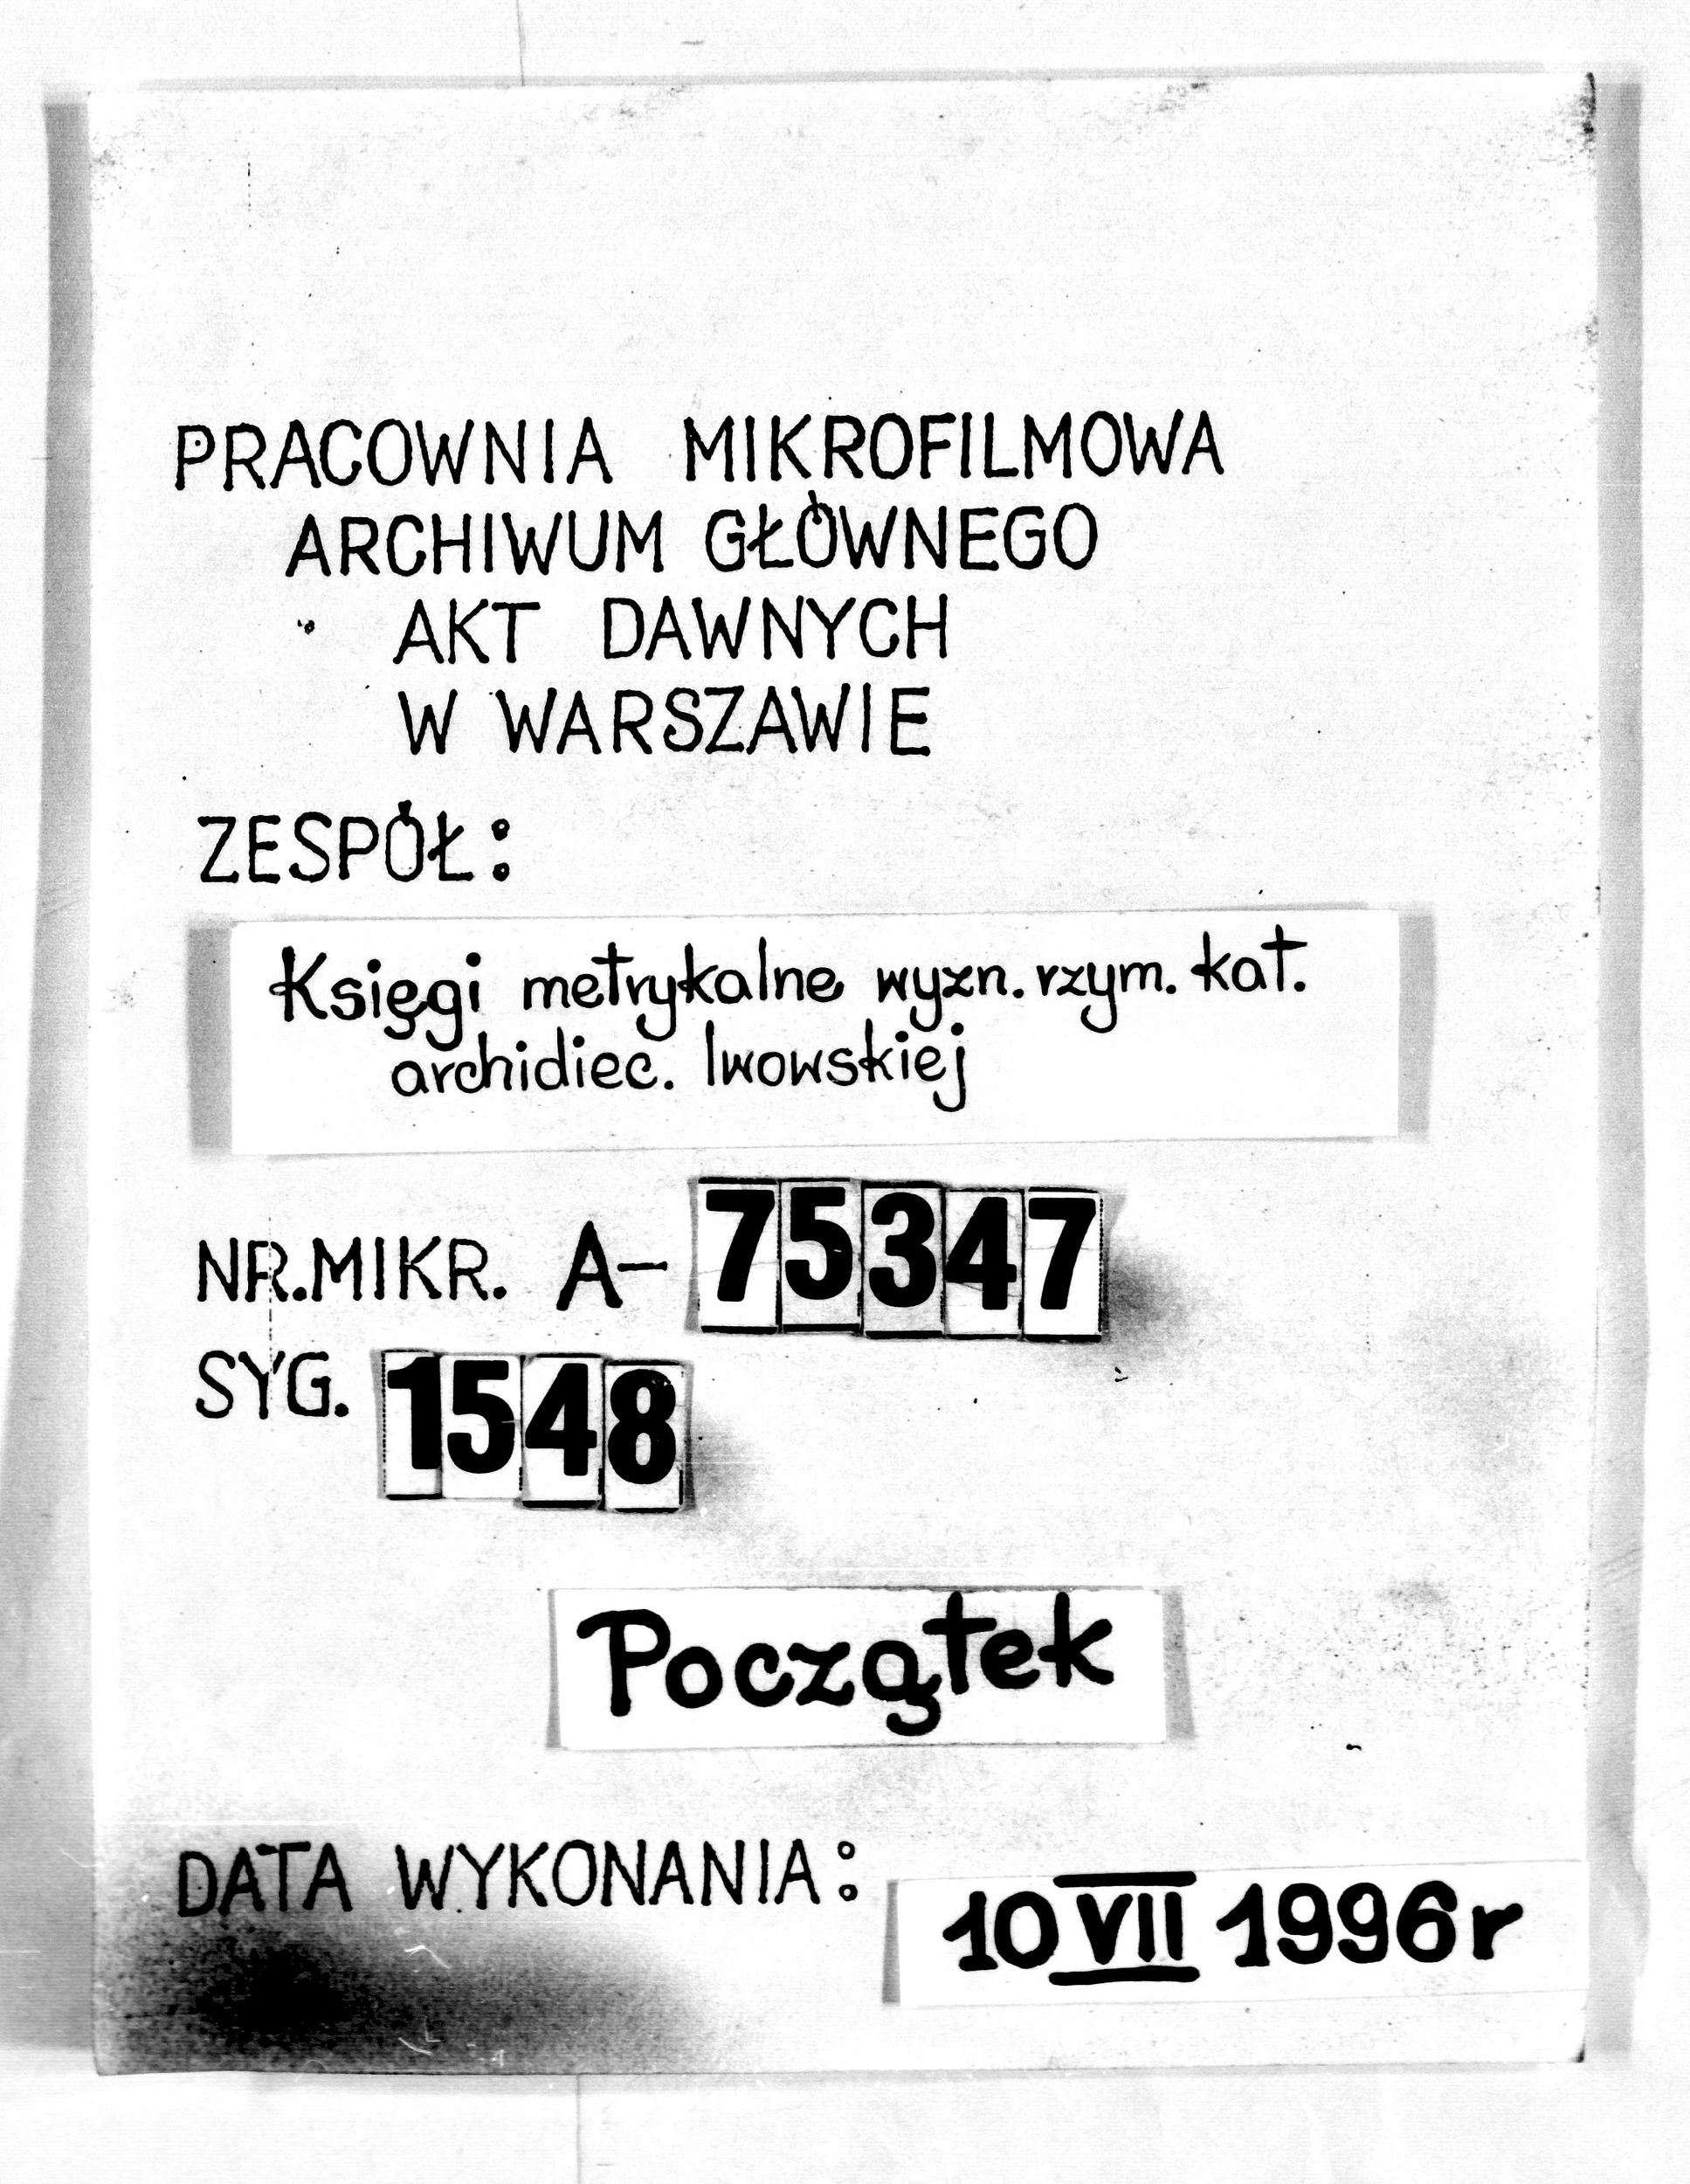 PRACOWNIA MIKROFILMOWA
ARCHIWUM GŁÓWNEGO
AKT DAWNYCH
W WARSZAWIE
ZESPÓŁ:
Księgi metrykalne wyzn. rzym. kat.
archidiec. lwowskiej
NR.MIKR. A-75347
SYG. 1548
Początek
DATA WYKONANIA: 10 VII 1996r